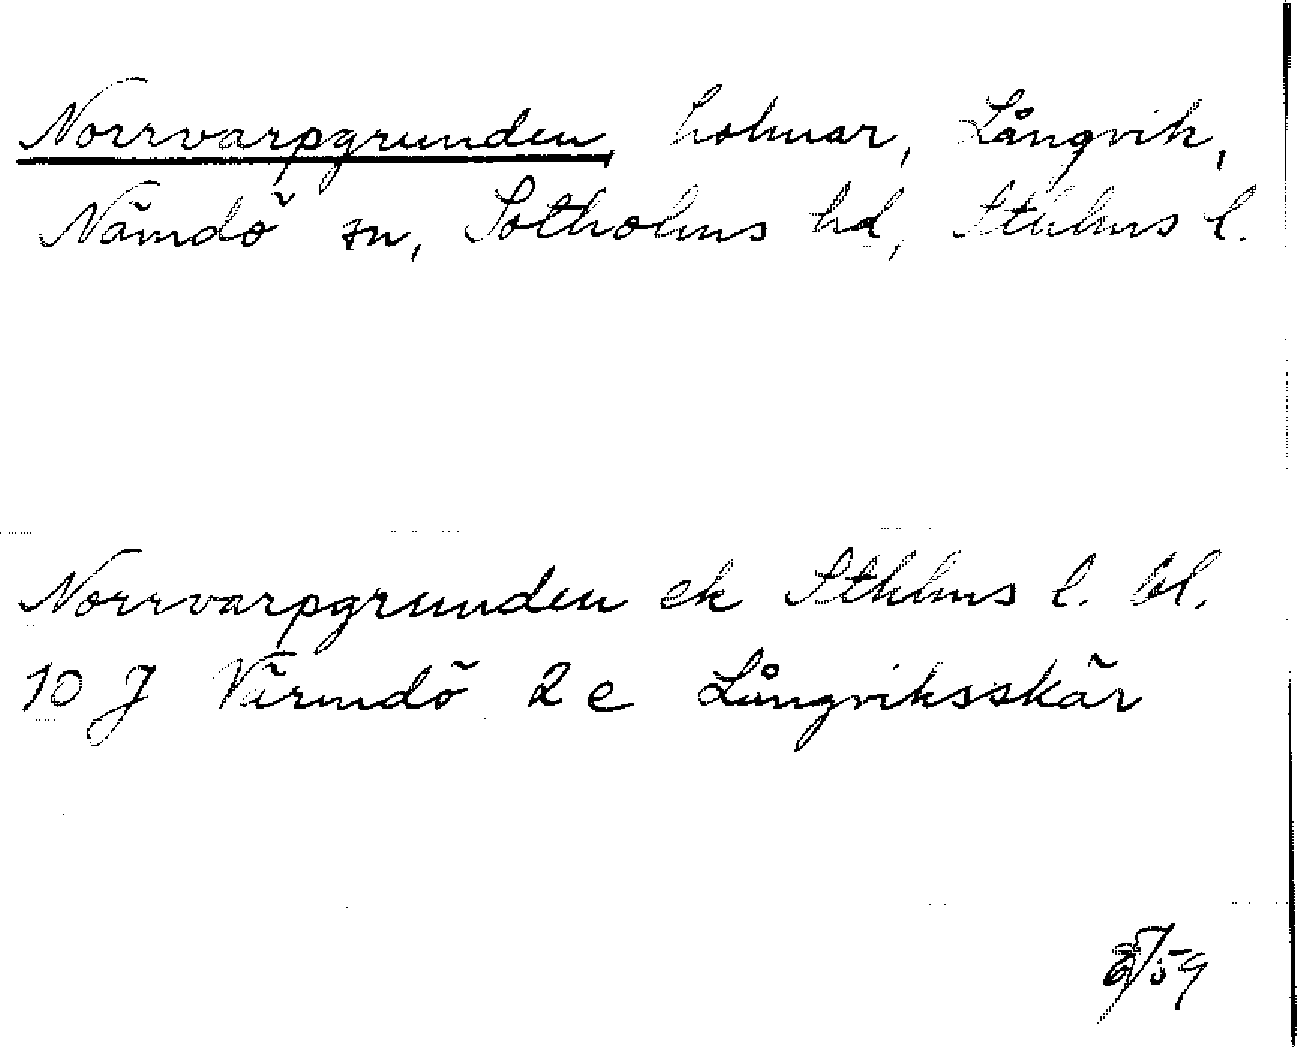 Norrvarpgrunden, holmar, Långvik,
Nämdö sn, Sotholms hd, Sthlms l.
Norrvarpgrunden ek Sthlms l. bl.
10 J Värmdö 2 e Långviksskär